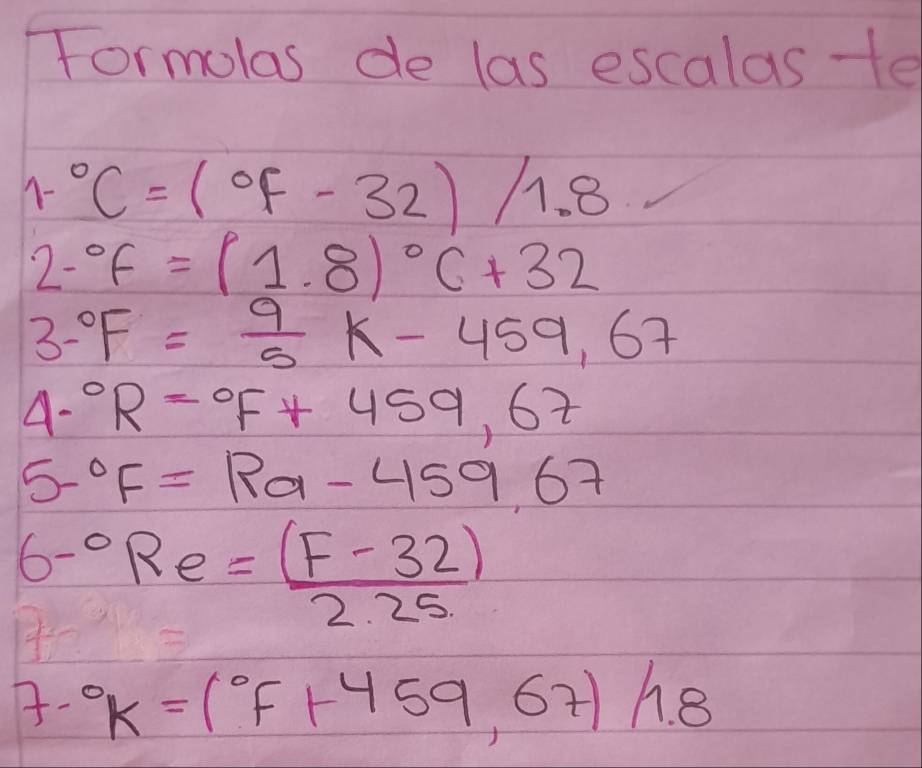 Formulas de las escalas te
1- °C = (°F - 32) /1.8
2- °F = (1.8) °C + 32
3- °F = 9/5 K - 459,67
4- °R = °F + 459,67
5- °F = Ra - 459,67
6- °Re = (F - 32) / 2.25
7- °K =
7- °K = (°F + 459,67) /1.8